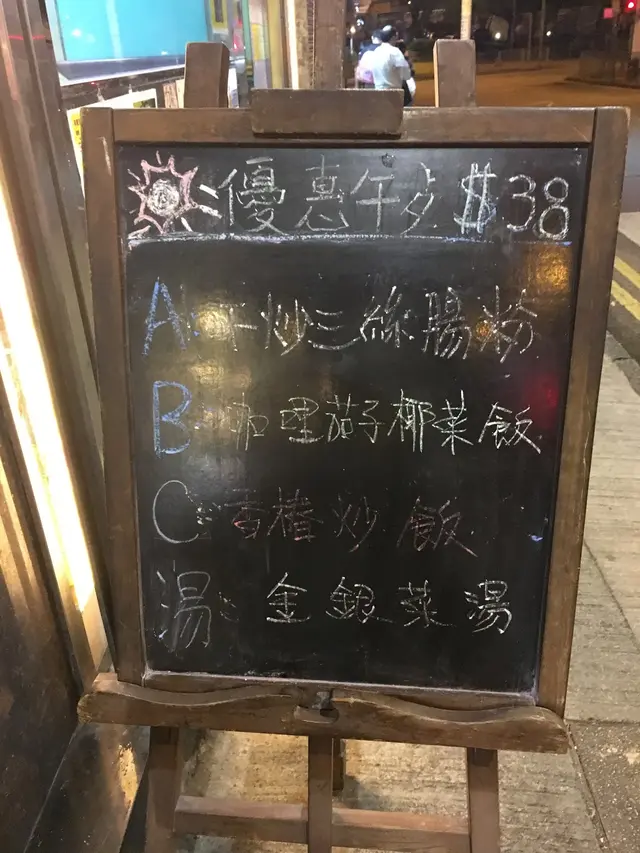 優惠午歺 $38
A: 干炒三絲腸粉
B: 咖哩茄子椰菜飯
C: 香椿炒飯
湯: 金銀菜湯